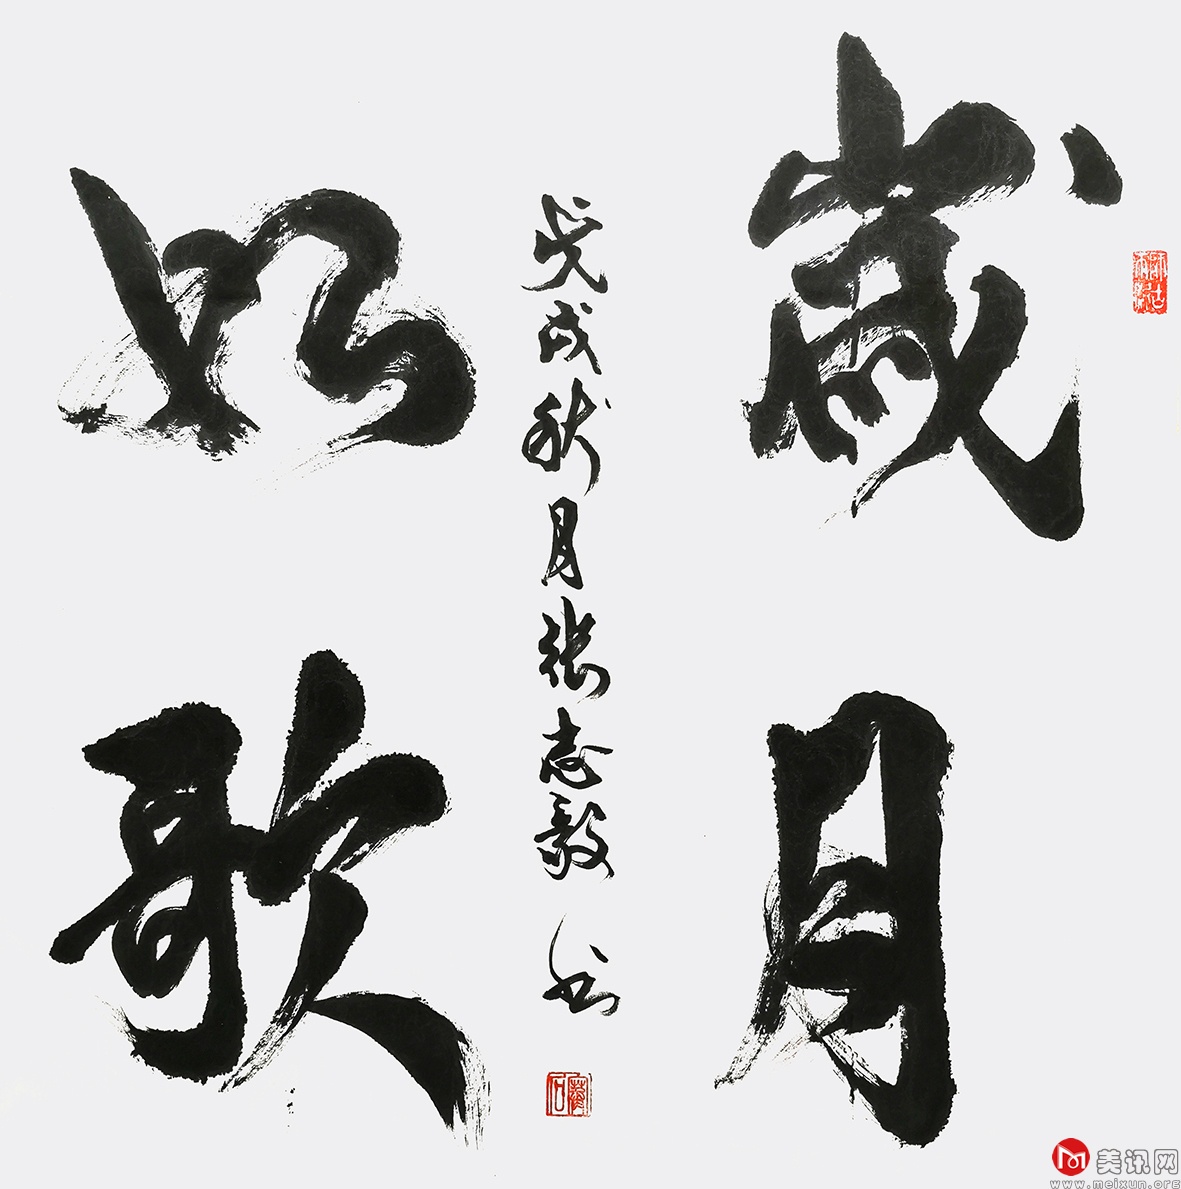 歲月
如歌
戌秋月張志毅书
美讯网
www.meixun.org